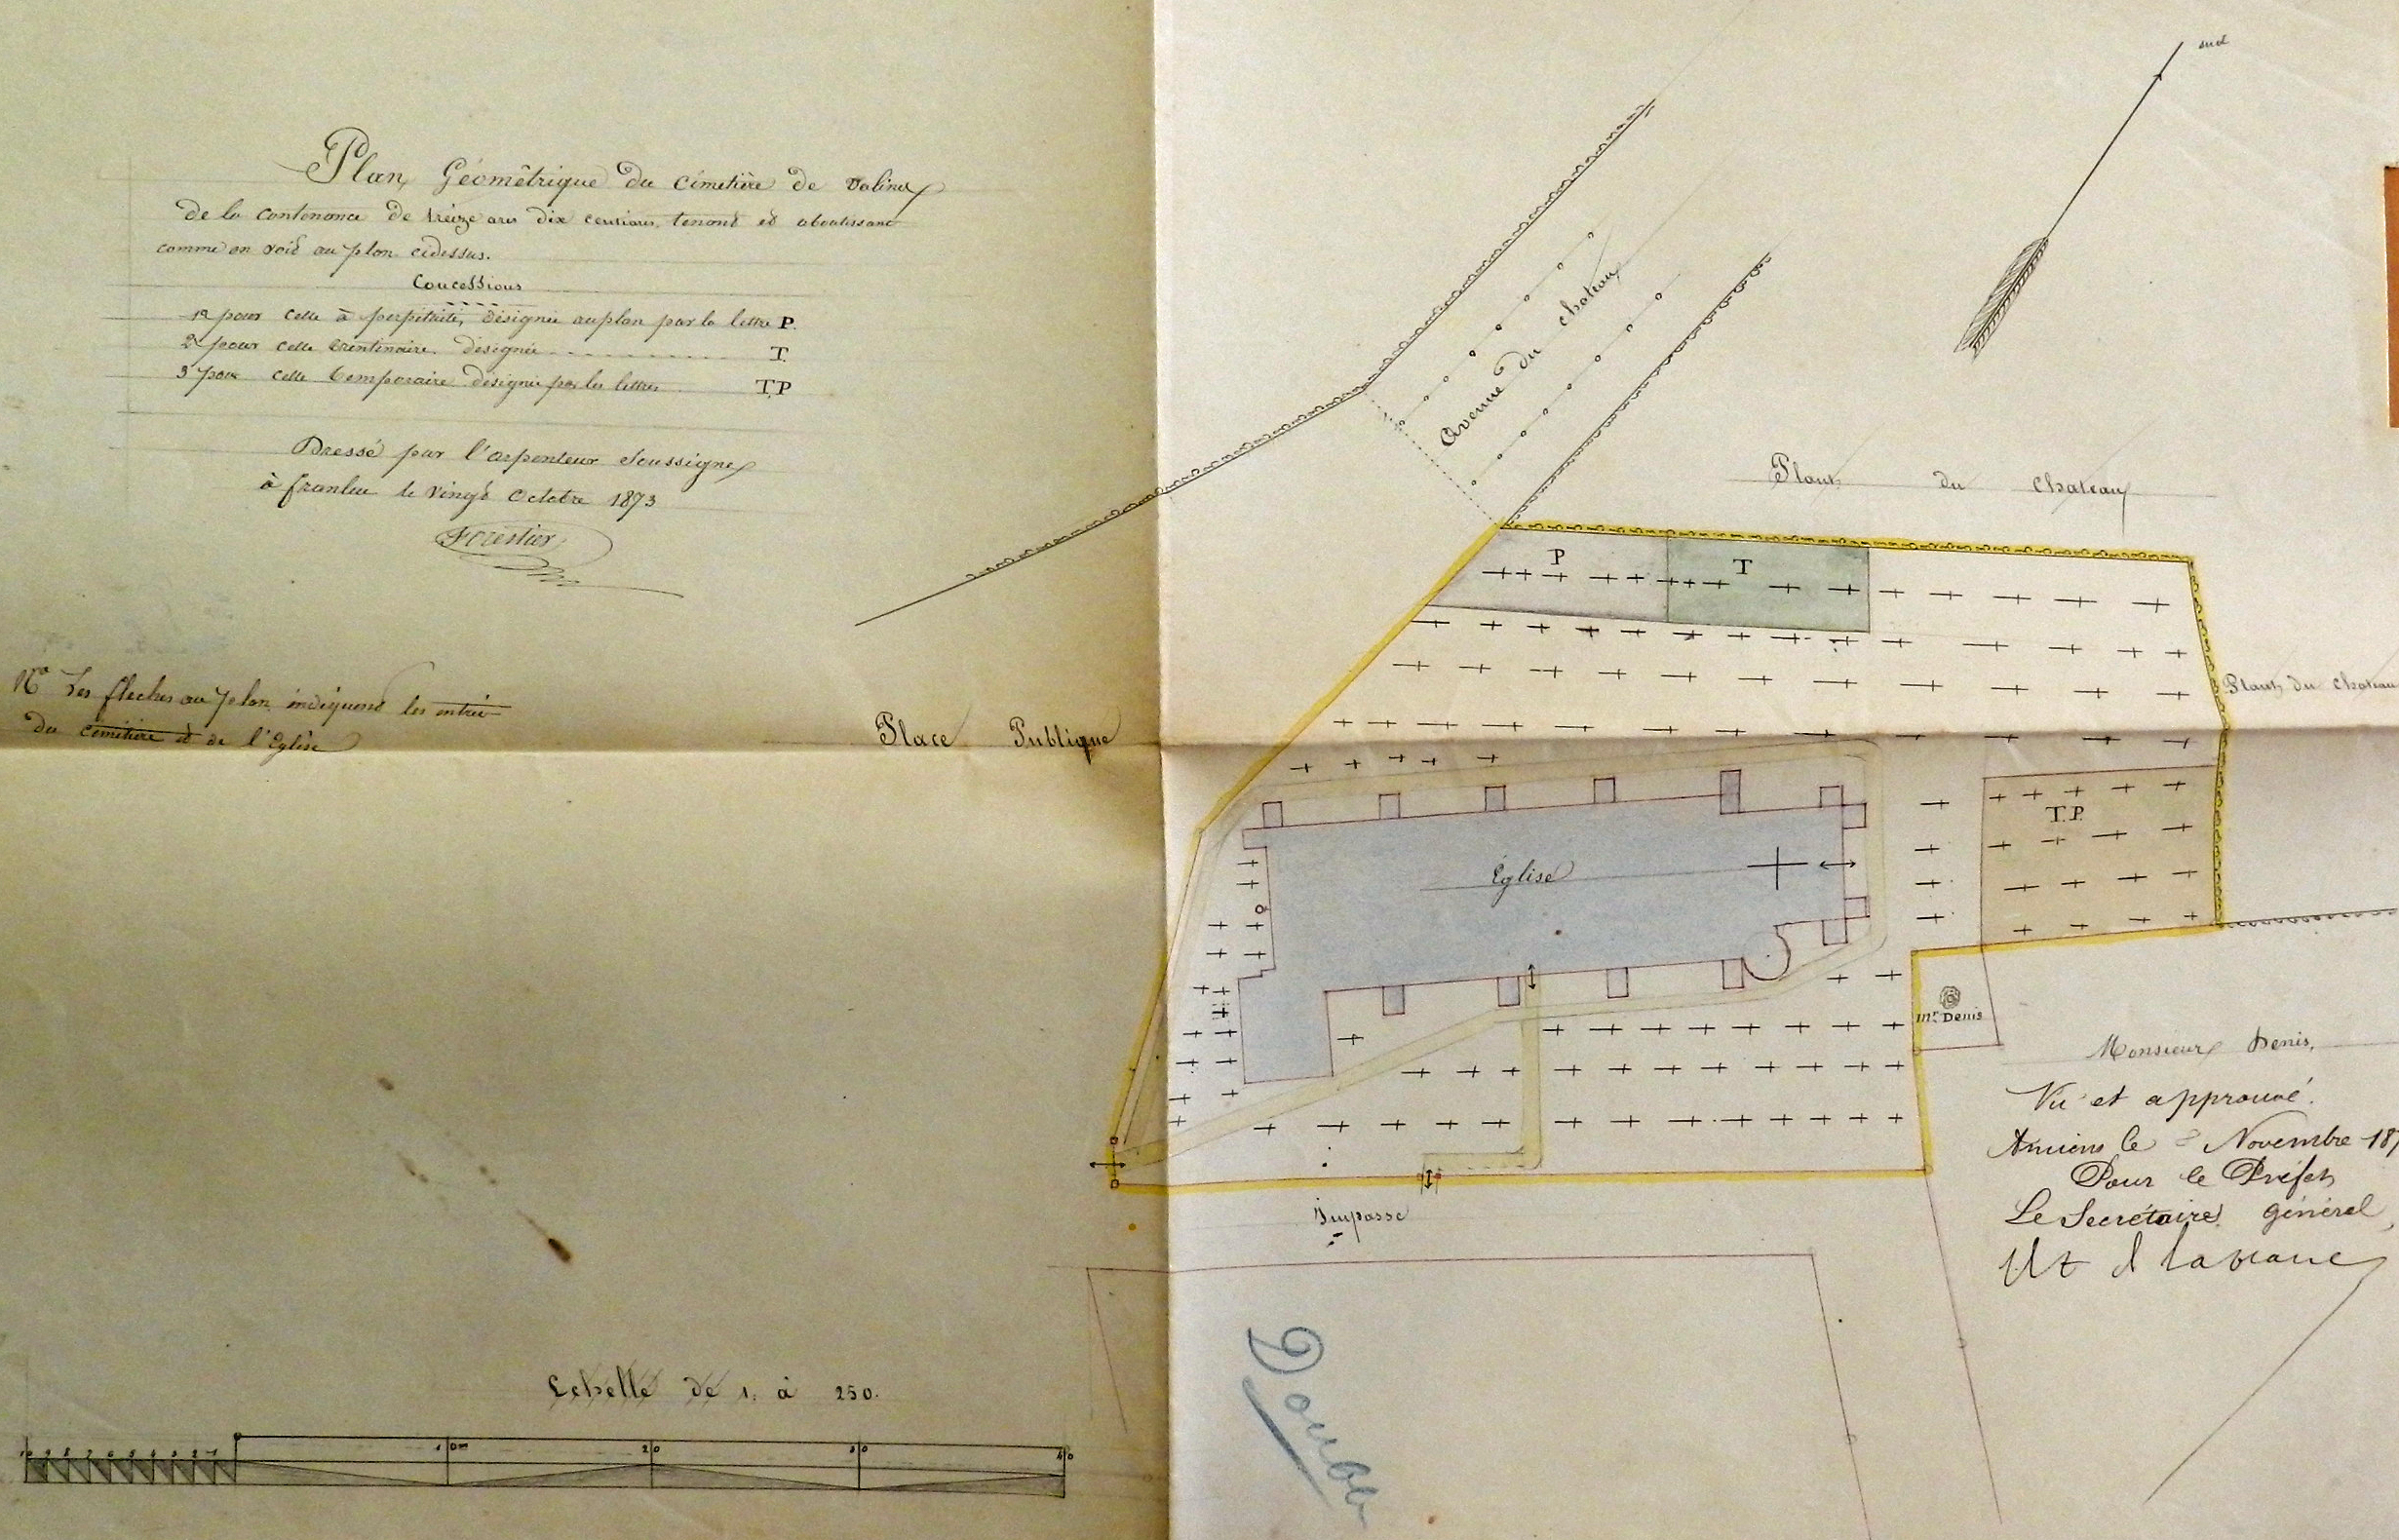 Plan Géométrique du cimetière de Valines
de la contenance de treize ares dix centiares, tenant et aboutissant
comme on voit au plan cidessus.
Concessions
1º pour celle à perpétuité, désignée au plan par la lettre P.
2º pour celle trentenaire désignée T.
3º pour celle temporaire désignée par les lettres T.P
Dressé par l'arpenteur Soussigné
à franleu le vingt Octobre 1873
Forestier
Nª Les fleches au plan indiquent les entrée
du cimetière et de l'Eglise
Place Publique
Avenue du chateau
sud
Plant du chateau
P
T
Plant du chateau
T.P.
Église
Mr. Denis
Monsieur Denis,
Vu et approuvé.
Amiens le Novembre 187
Pour le Préfet
Le Secrétaire général,
Impasse
Double
Echelle de 1. à 250.
10 9 8 7 6 5 4 3 2 1 10m 20 30 40